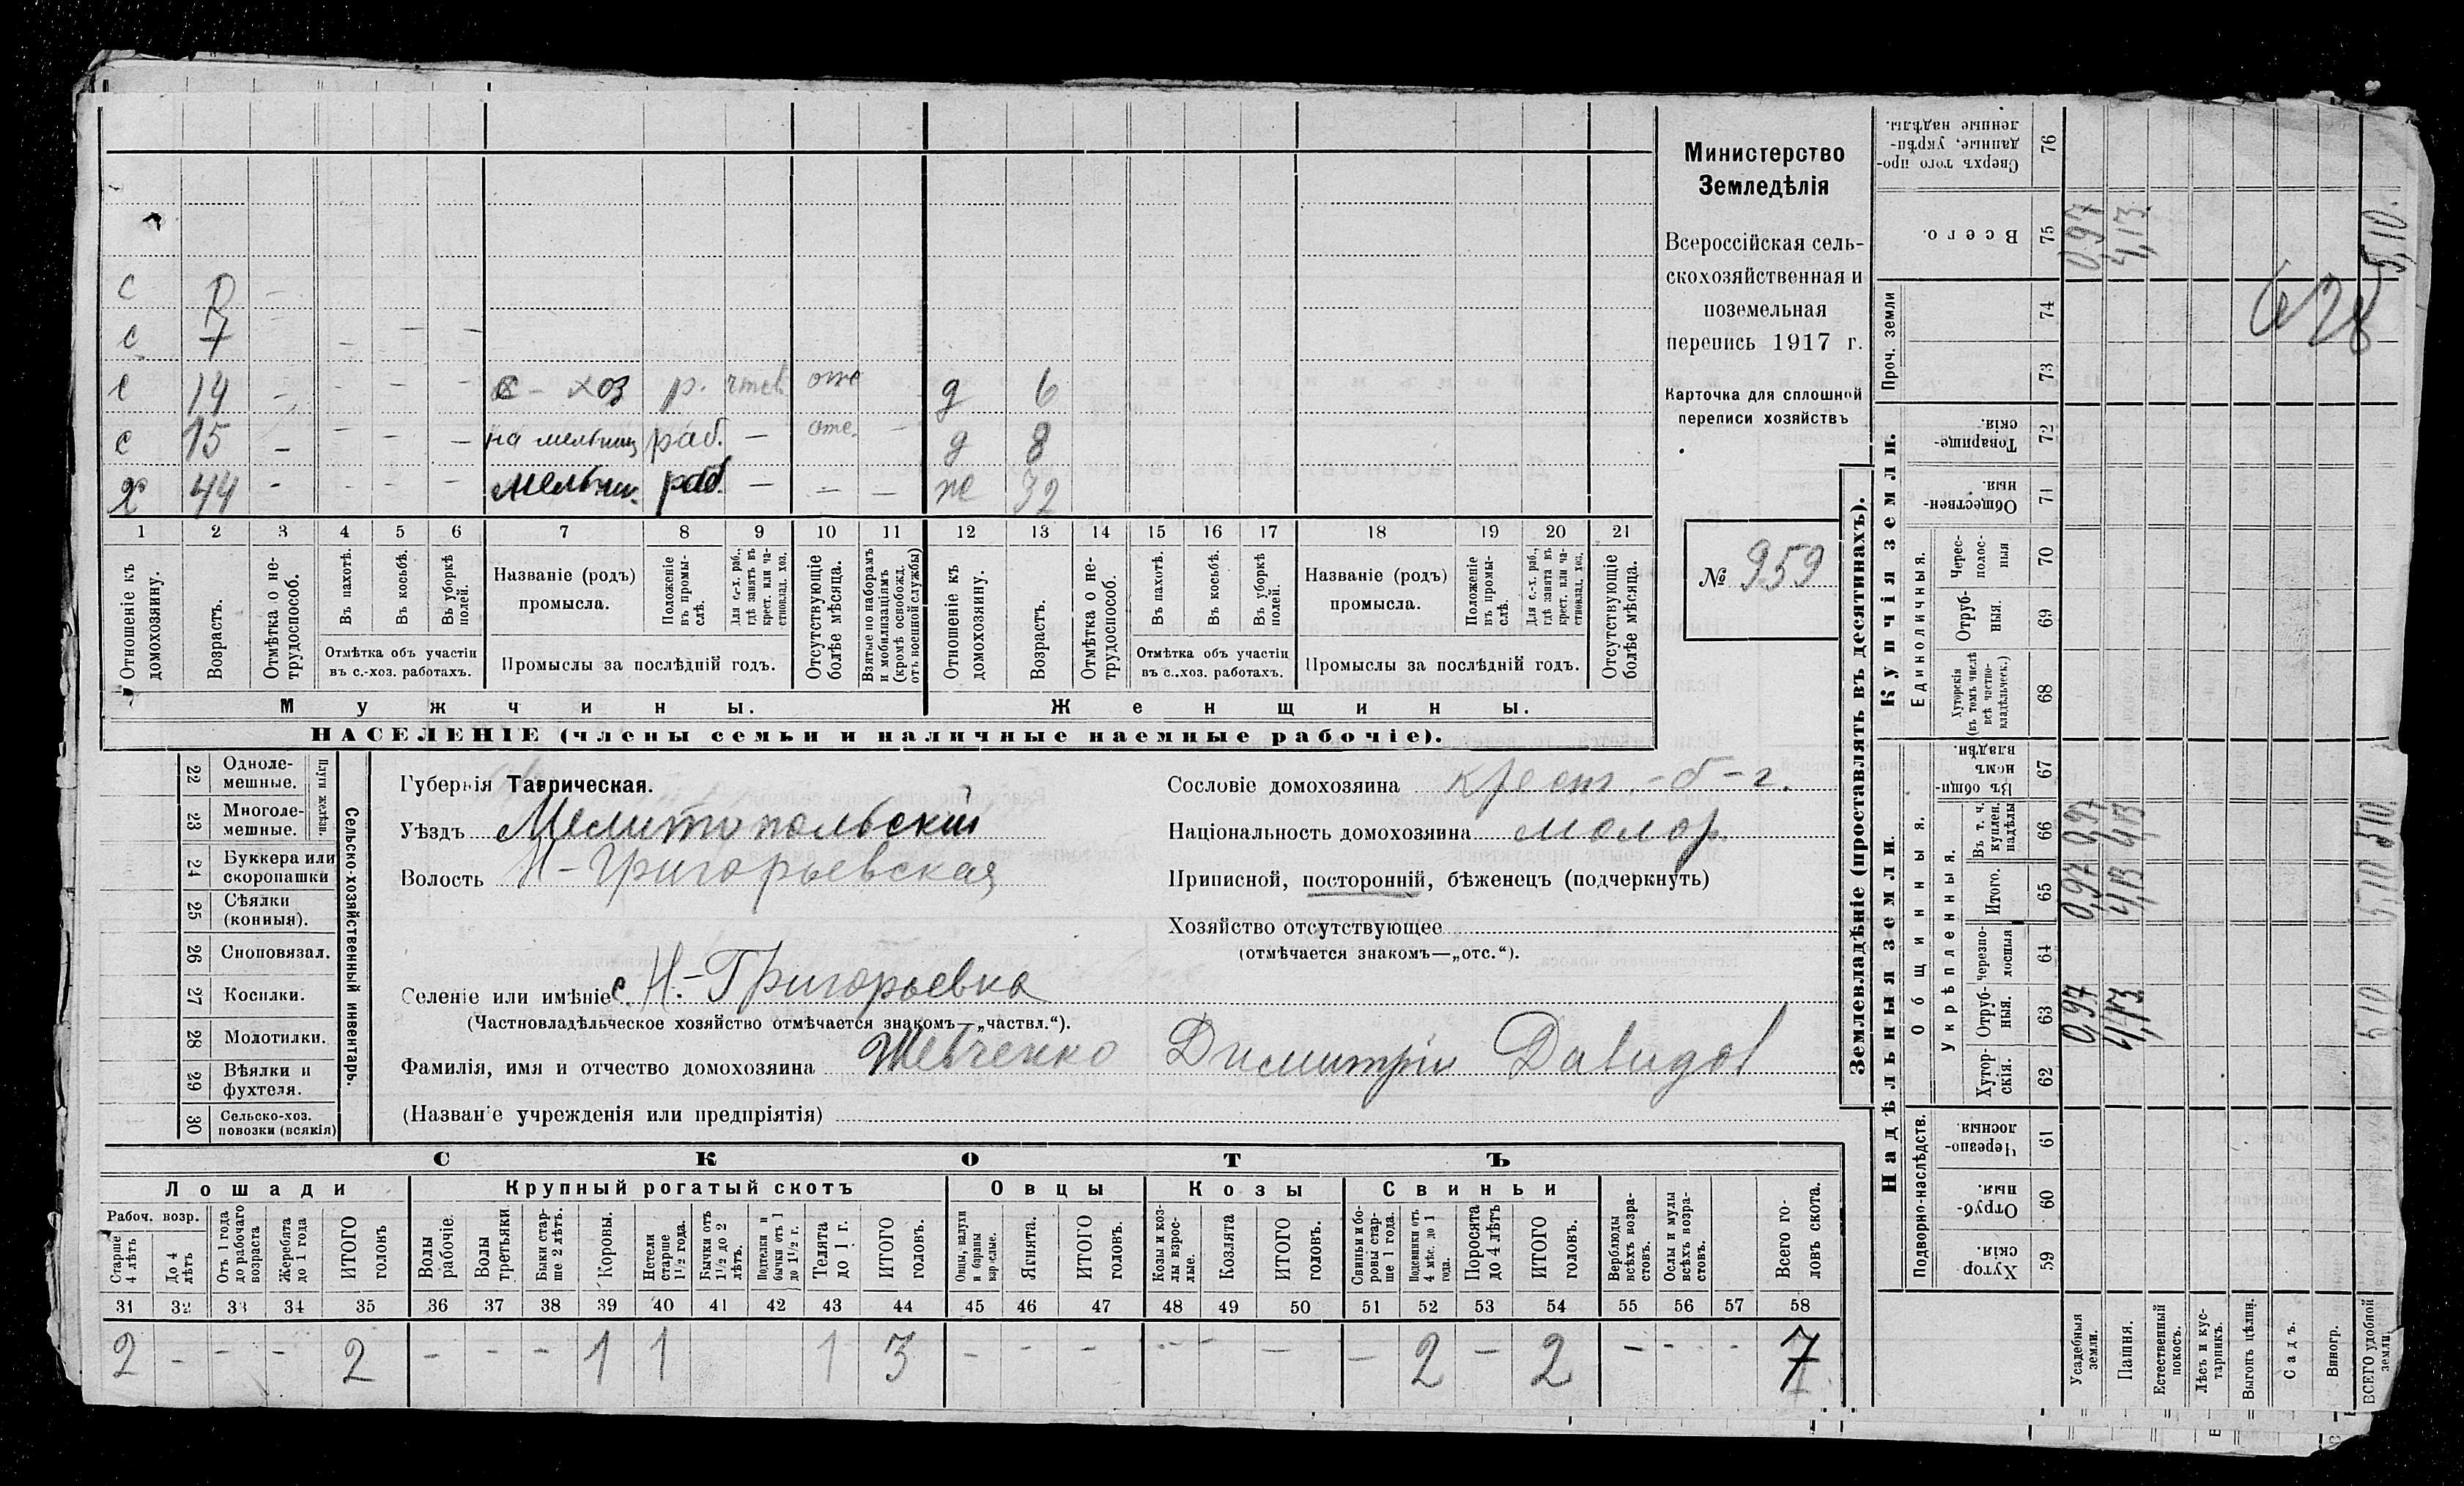 с
с 7 - - -
с 14 - - - - с-хоз р. отс д 6
с 15 - - - - на мельниц раб. - отс. - д 8
х 44 - - - - Мельни. раб. - - - же 32
1 2 3 4 5 6 7 8 9 10 11 12 13 14 15 16 17 18 19 20 21
Отношеніе къ домохозяину. Возрастъ. Отмѣтка о не-трудоспособ. Въ пахотѣ. Въ косьбѣ. Въ уборкѣ полей. Названіе (родъ) промысла. Положеніе въ промы-слѣ. Для с.-х. раб., гдѣ занятъ въ крест. или ча-стновлад. хоз. Отсутствующіе болѣе мѣсяца. Взятые по наборамъ и мобилизаціямъ (кромѣ освобожд. отъ военной службы) Отношеніе къ домохозяину. Возрастъ. Отмѣтка о не-трудоспособ. Въ пахотѣ. Въ косьбѣ. Въ уборкѣ полей. Названіе (родъ) промысла. Положеніе въ промы-слѣ. Для с.-х. раб., гдѣ занята въ крест. или ча-стновлад. хоз. Отсутствующіе болѣе мѣсяца.
Отмѣтка объ участіи въ с.-хоз. работахъ. Промыслы за послѣдній годъ. Отмѣтка объ участіи въ с..хоз. работахъ. Промыслы за послѣдній годъ.
Мужчины. Женщины.
НАСЕЛЕНІЕ (члены семьи и наличные наемные рабочіе).
Министерство
Земледѣлія
Всероссійская сель-
скохозяйственная и
поземельная
перепись 1917 г.
Карточка для сплошной
переписи хозяйствъ
№ 959
22 Одноле-мешные.
23 Многоле-мешные.
Плуги желѣзн.
24 Буккера или скоропашки
25 Сѣялки (конныя).
26 Сноповязал.
27 Косилки.
28 Молотилки.
29 Вѣялки и фухтеля.
30 Сельско-хоз. повозки (всякія)
Сельско-хозяйственный инвентарь.
Губернія Таврическая.
Уѣздъ Мелитопольский
Волость Н-Григорьевская
Селеніе или имѣніе с. Н.-Григорьевка
(Частновладѣльческое хозяйство отмѣчается знакомъ—„частвл.“).
Фамилія, имя и отчество домохозяина Шевченко Димитрій Давидов
(Названіе учрежденія или предпріятія)
Сословіе домохозяина крест.
Національность домохозяина малор.
Приписной, посторонній, бѣженецъ (подчеркнуть)
Хозяйство отсутствующее
(отмѣчается знакомъ—„отс.“).
СКОТЪ
Лошади Крупный рогатый скотъ Овцы Козы Свиньи
Рабоч. возр.
Старше 4 лѣтъ До 4 лѣтъ Отъ 1 года до рабочаго возраста Жеребята до 1 года ИТОГО головъ Волы рабочіе Волы третьяки Быки стар-ше 2 лѣтъ. Коровы. Нетели старше 1½ года. Бычки отъ 1½ до 2 лѣтъ. Подтелки и бычки отъ 1 до 1½ г. Телята до 1 г. ИТОГО головъ. Овцы, валухи и бараны взрослые. Ягнята. ИТОГО головъ. Козы и коз-лы взрос-лые. Козлята ИТОГО головъ. Свиньи и бо-ровы стар-ше 1 года. Подсвинки отъ 4 мѣс. до 1 года. Поросята до 4 лѣтъ ИТОГО головъ. Верблюды всѣхъ возра-стовъ. Ослы и мулы всѣхъ возра-стовъ. Всего го-ловъ скота.
31 32 33 34 35 36 37 38 39 40 41 42 43 44 45 46 47 48 49 50 51 52 53 54 55 56 57 58
2 - - - 2 - - - 1 1 1 3 - - - - - - - 2 - 2 - - - 7
Землевладѣніе (проставлять въ десятинахъ).
Купчія земли.
Надѣльныя земли.
Проч. земли
Единоличныя.
Общинныя.
Укрѣпленныя.
Подворно-наслѣдств.
76 Сверхъ того про-данные, укрѣп-ленные надѣлы.
75 Всего. 0,97 4,13 5,10.
74
73
72 Товарище-скія.
71 Обществен-ныя.
70 Черес-полос-ныя
69 Отруб-ныя.
68 Хуторскія (въ томъ числѣ всѣ частно-владѣльческ.)
67 Въ общи-номъ владѣн.
66 Въ т. ч. куплен. надѣлы 0,97 4,13 5,10.
65 Итого. 0,97 4,13 5,10
64 черезпо-лосныя
63 Отруб-ныя. 0,97 4,13 5,10
62 Хутор-скія.
61 Черезпо-лосныя.
60 Отруб-ныя.
59 Хутор-скія.
Усадебныя земли. Пашня. Естественный покосъ. Лѣсъ и кус-тарникъ. Выгонъ цѣлин. Садъ. Виногр. ВСЕГО удобной земли
628